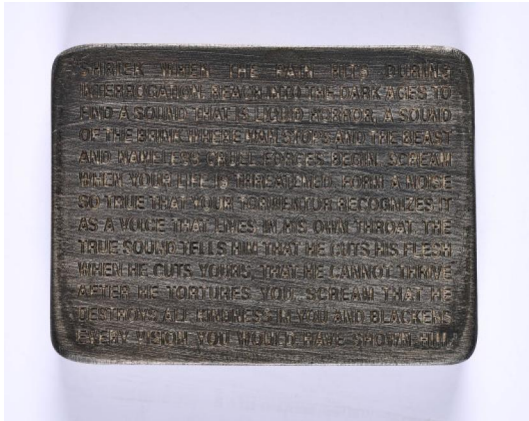 SHRIEK WHEN THE PAIN HITS DURING
INTERROGATION. REACH INTO THE DARK AGES TO
FIND A SOUND THAT IS LIQUID HORROR, A SOUND
OF THE BRINK WHERE MAN STOPS AND THE BEAST
AND NAMELESS CRUEL FORCES BEGIN. SCREAM
WHEN YOUR LIFE IS THREATENED. FORM A NOISE
SO TRUE THAT YOUR TORMENTOR RECOGNIZES IT
AS A VOICE THAT LIVES IN HIS OWN THROAT. THE
TRUE SOUND TELLS HIM THAT HE CUTS HIS FLESH
WHEN HE CUTS YOURS, THAT HE CANNOT THRIVE
AFTER HE TORTURES YOU. SCREAM THAT HE
DESTROYS ALL KINDNESS IN YOU AND BLACKENS
EVERY VISION YOU COULD HAVE SHOWN HIM.